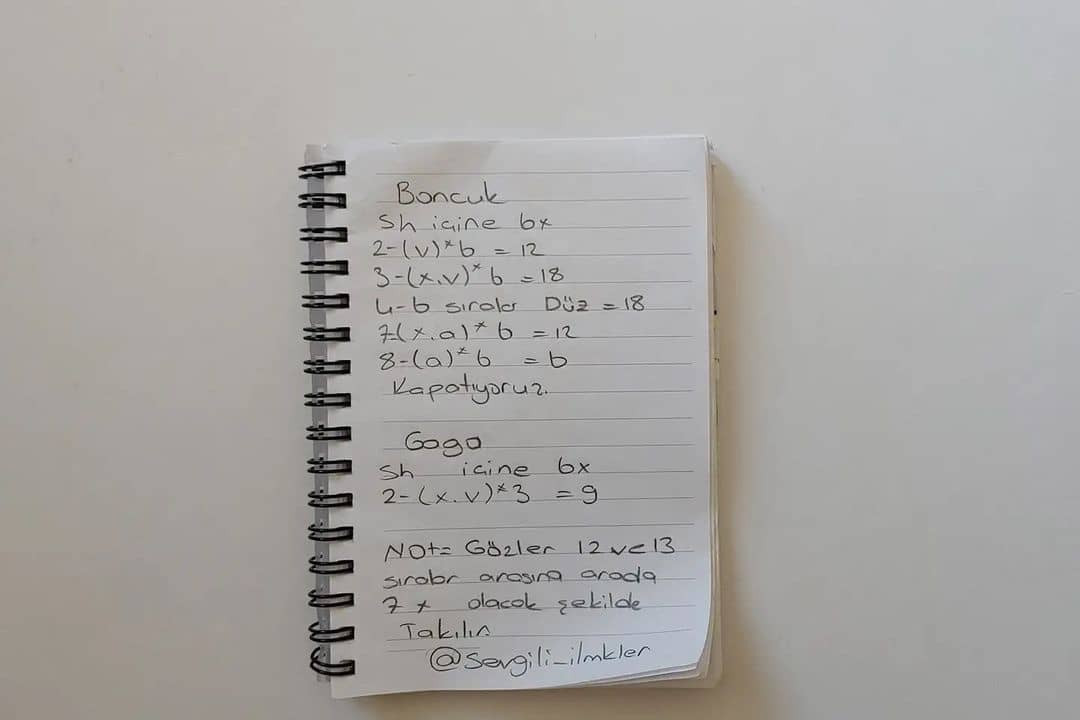 Boncuk
Sh içine 6x
2-(v)*6 = 12
3-(x.v)*6 = 18
4-6 sıralar Düz = 18
7(x.a)*6 = 12
8-(a)*6 = 6
Kapatıyoruz.
Gaga
Sh içine 6x
2-(x.v)*3 = 9
NOt= Gözler 12 ve 13
sıralar arasına arada
7 x olacak şekilde
Takılın
@sevgili_ilmkler